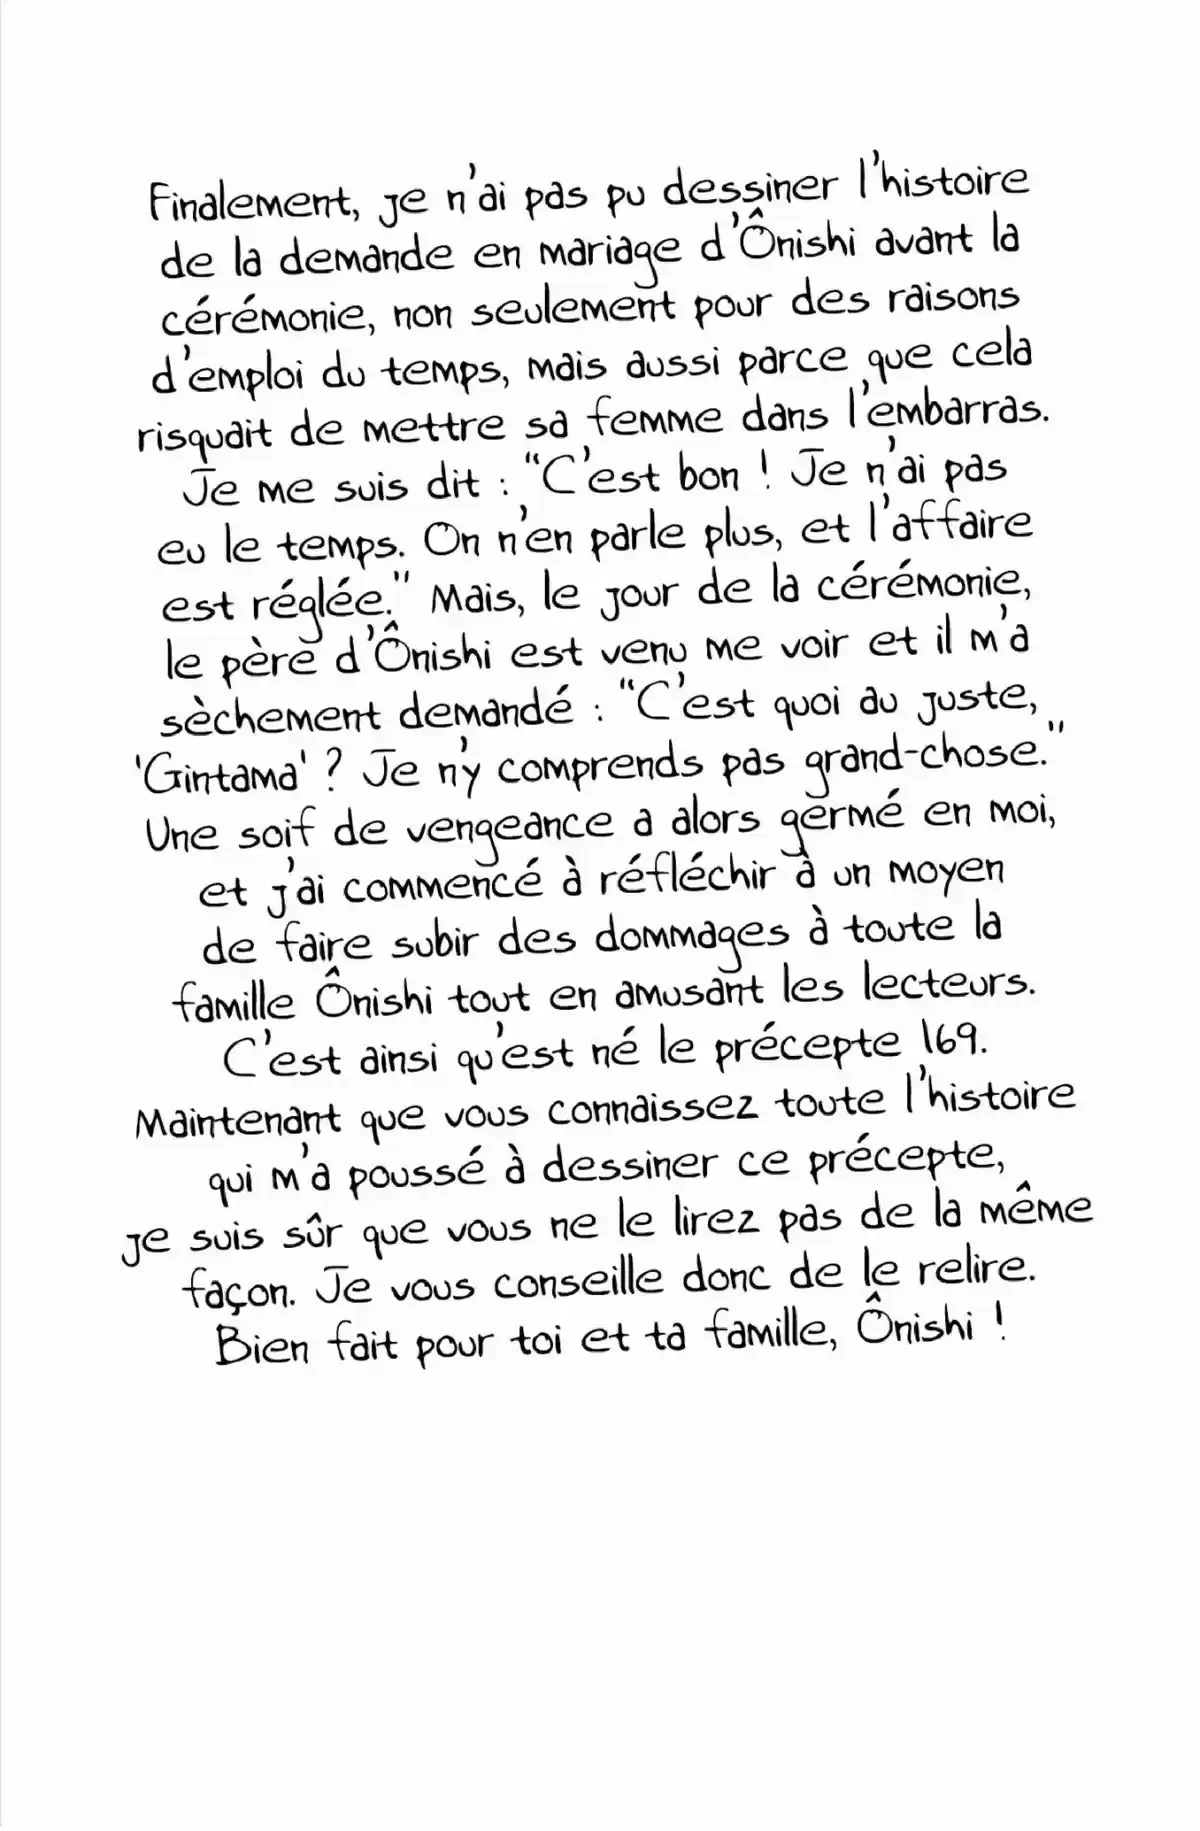 Finalement, je n'ai pas pu dessiner l'histoire
de la demande en mariage d'Ônishi avant la
cérémonie, non seulement pour des raisons
d'emploi du temps, mais aussi parce que cela
risquait de mettre sa femme dans l'embarras.
Je me suis dit : "C'est bon ! Je n'ai pas
eu le temps. On n'en parle plus, et l'affaire
est réglée." Mais, le jour de la cérémonie,
le père d'Ônishi est venu me voir et il m'a
sèchement demandé : "C'est quoi au juste,
'Gintama' ? Je n'y comprends pas grand-chose."
Une soif de vengeance a alors germé en moi,
et j'ai commencé à réfléchir à un moyen
de faire subir des dommages à toute la
famille Ônishi tout en amusant les lecteurs.
C'est ainsi qu'est né le précepte 169.
Maintenant que vous connaissez toute l'histoire
qui m'a poussé à dessiner ce précepte,
je suis sûr que vous ne le lirez pas de la même
façon. Je vous conseille donc de le relire.
Bien fait pour toi et ta famille, Ônishi !